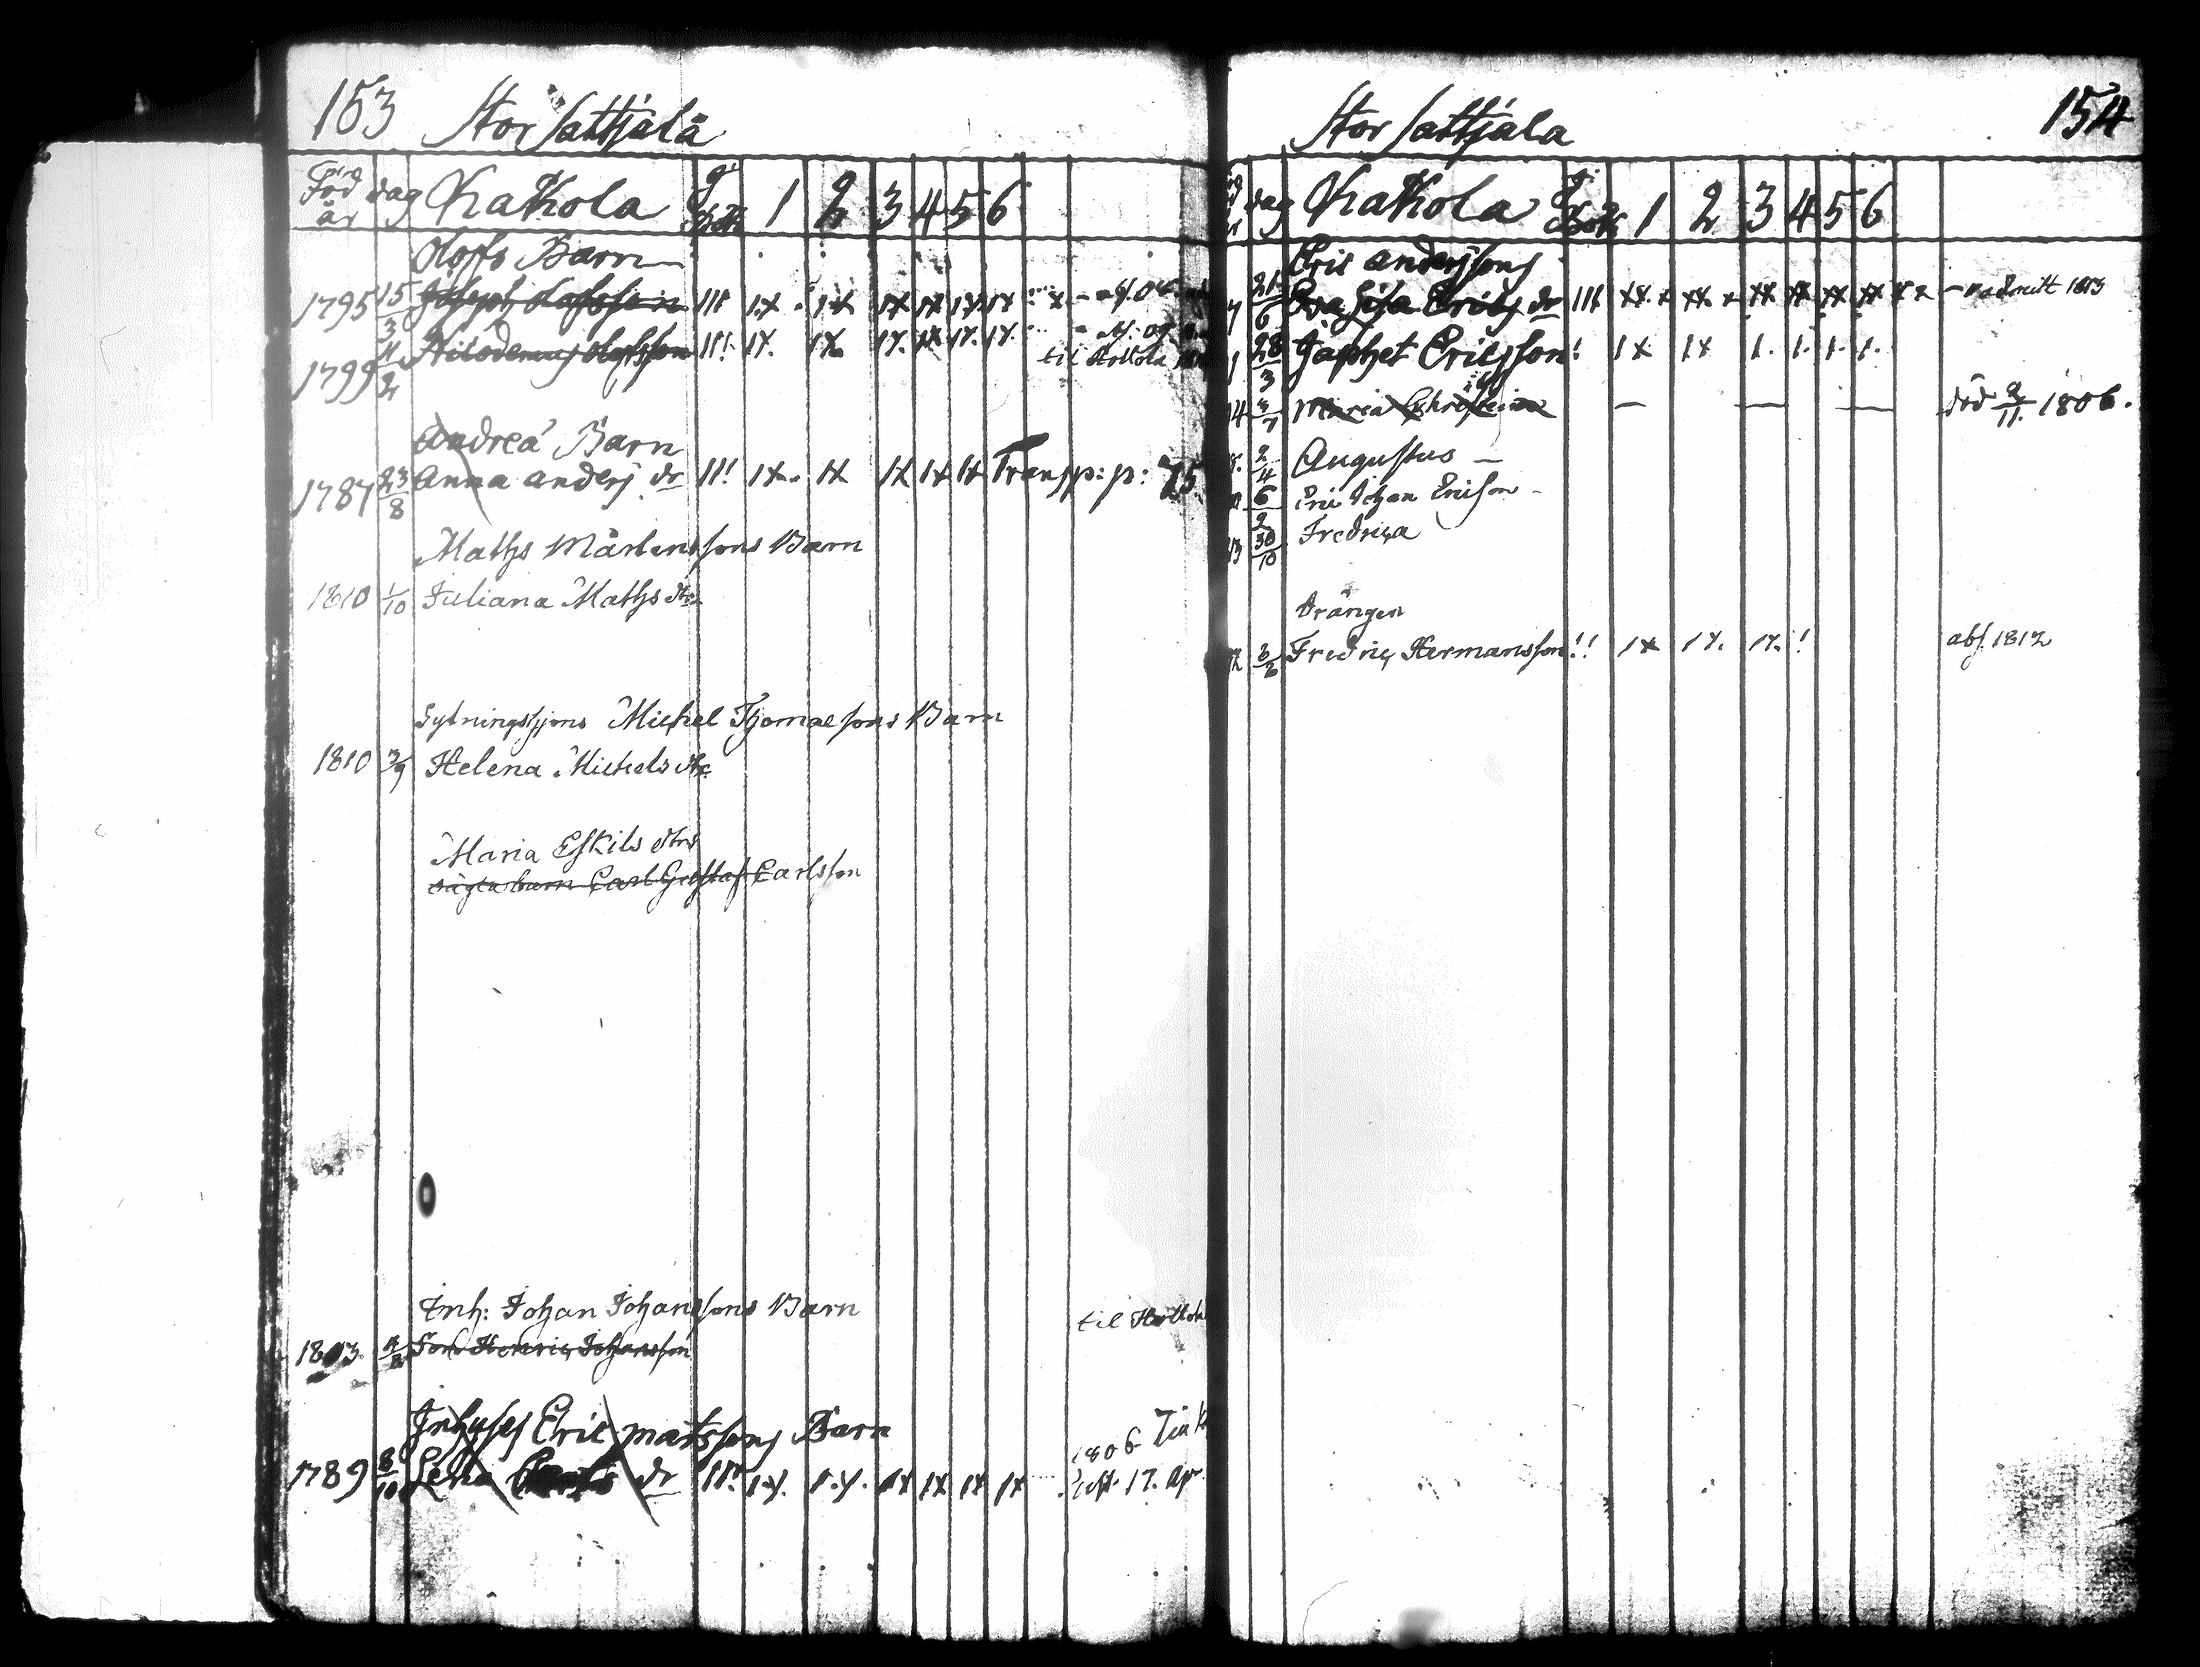 153 Stor Sattiala
Föd år dag Kakola I bok 1 2 3 4 5 6
Olofs Barn
1795 15/3 Joseph Olofsson 111 1x 1x 1x 1x 1x 1x
1799 11/2 Nicodemus Olofsson 11! 1x. 1x 1x. 1x 1x. 1x.
til
Andreä Barn
1787 23/8 Anna Anders dr 11! 1x. 1x 1x 1x 1x Transp: p: 75
Maths Mårtenssons Barn
1810 1/10 Juliana Maths dtr
Sytningshjons Michel Thomaesons Barn
1810 3/9 Helena Michels dtr
Maria Eskils dtrs
oägta barn Carl Gustaf Carlsson
Inh: Johan Johanssons Barn til
1803 Henric Johansson
Inhyses Eric Matssons Barn
1789 8/10 Lena dr 11! 1x. 1x. 1x 1x 1x 1x 1806
17. Apr.
Stor Sattiala 154
dag Kakola I bok 1 2 3 4 5 6
Eric Anderssons
21/6 Eva Lisa Erics dr 111 xx. x xx. x xx xx xx xx x x 1813
28/3 Japhet Ericsson ! 1x 1x 1. 1. 1. 1.
4 3/7 Maria Christina — — — död 2/11. 1806.
2/4 Augustus —
6/2 Eric Johan Ericson -
13 30/10 Fredrica
Drängen
2 3/2 Fredric Hermansson !! 1x 1x. 1x. ! abs. 1812